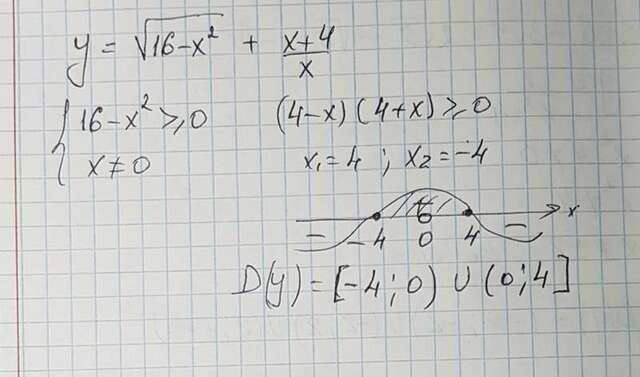 y = √16-x² + x+4/x
{ 16-x² ≥ 0 (4-x)(4+x) ≥ 0
x ≠ 0 x₁=4 ; x₂=-4
− + − x
-4 0 4
D(y) = [-4; 0) ∪ (0; 4]